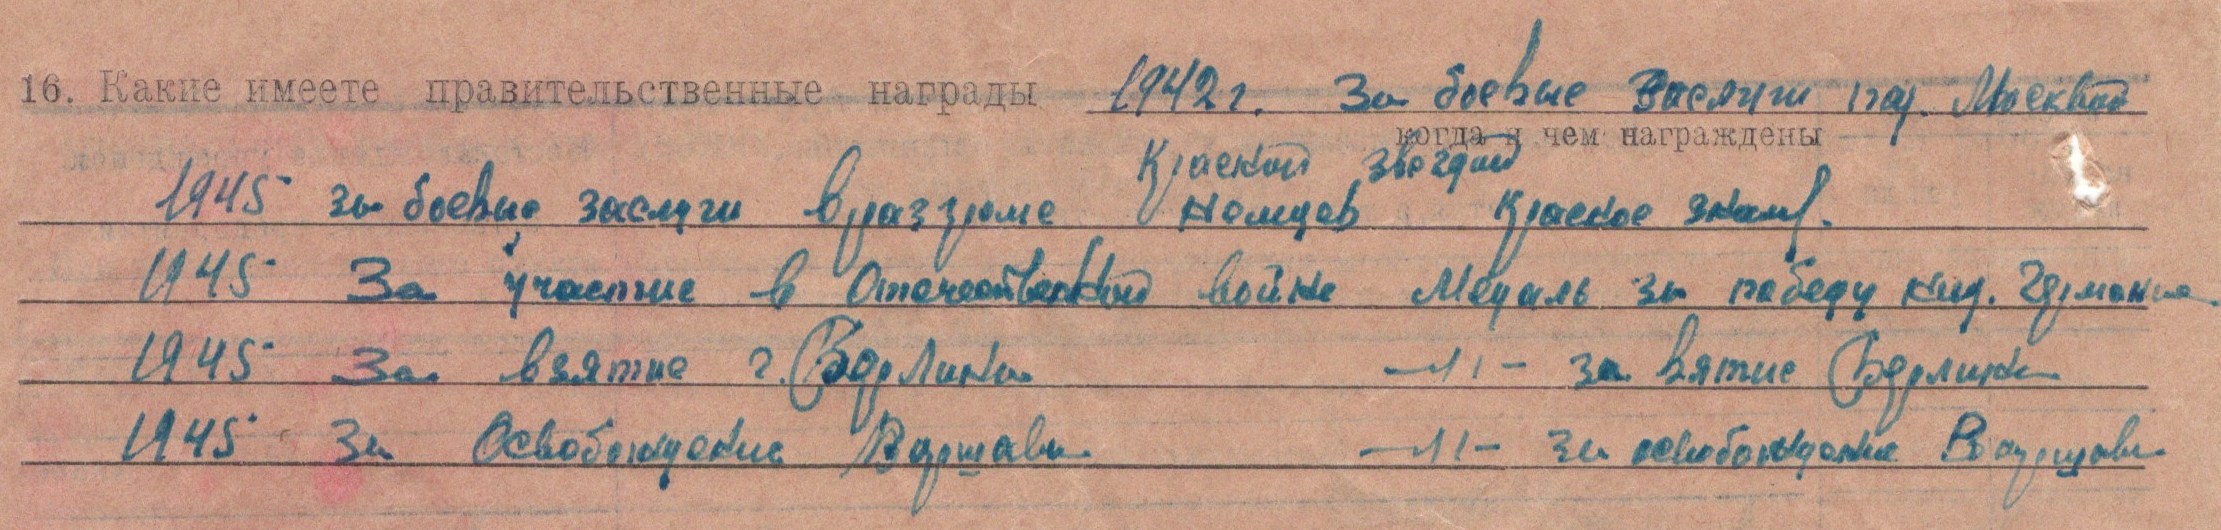 16. Какие имеете правительственные награды 1942 г. За боевые заслуги под. Москвой
когда и чем награждены
Красной звездой
1945 за боевые заслуги в разгроме немцев Красное знам.
1945 За участие в Отечественной войне Медаль за победу над. Германие
1945 За взятие г. Берлина —11— за вятие Берлина
1945 За Освобождение Варшавы —11— за освобождение Варшавы